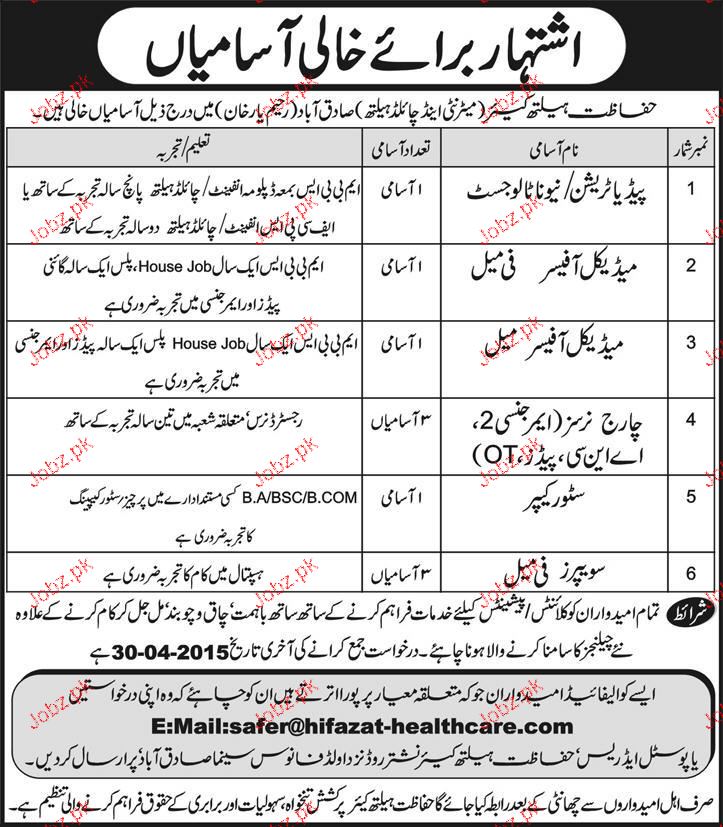 اشتہار برائے خالی آسامیاں
حفاظت ہیلتھ کیئر (میٹرنٹی اینڈ چائلڈ ہیلتھ) صادق آباد (رحیم یار خان) میں درج ذیل آسامیاں خالی ہیں۔
نمبر شمار نام آسامی تعداد آسامی تعلیم/تجربہ
1 پیڈیاٹریشن/نیوناٹالوجسٹ ۱ آسامی ایم بی بی ایس بمعہ ڈپلومہ انفینٹ/چائلڈ ہیلتھ پانچ سالہ تجربہ کے ساتھ یا
ایف سی پی ایس انفینٹ/چائلڈ ہیلتھ دو سالہ تجربہ کے ساتھ
2 میڈیکل آفیسر فی میل ۱ آسامی ایم بی بی ایس ایک سال House Job، پلس ایک سالہ گائنی
پیڈز اور ایمرجنسی میں تجربہ ضروری ہے
3 میڈیکل آفیسر میل ۱ آسامی ایم بی بی ایس ایک سال House Job پلس ایک سالہ پیڈز اور ایمرجنسی
میں تجربہ ضروری ہے
4 چارج نرسز (ایمرجنسی 2، ۳ آسامیاں رجسٹرڈ نرس' متعلقہ شعبہ میں تین سالہ تجربہ کے ساتھ
اے این سی، پیڈز، OT)
5 سٹور کیپر ۱ آسامی B.A/BSC/B.COM کسی مستند ادارے میں پرچیز/سٹور کیپنگ
کا تجربہ ضروری ہے
6 سویپرز فی میل ۳ آسامیاں ہسپتال میں کام کا تجربہ ضروری ہے
شرائط تمام امیدواران کو کلائنٹس/پیشینٹس کیلئے خدمات فراہم کرنے کے ساتھ ساتھ باہمت' چاق و چوبند' مل جل کر کام کرنے کے علاوہ
نئے چیلنجز کا سامنا کرنے والا ہونا چاہئے۔ درخواست جمع کرانے کی آخری تاریخ 30-04-2015 ہے
ایسے کوالیفائیڈ امیدواران جو کہ متعلقہ معیار پر پورا اترتے ہیں ان کو چاہئے کہ وہ اپنی درخواستیں
E:Mail:safer@hifazat-healthcare.com
یا پوسٹل ایڈریس' حفاظت ہیلتھ کیئر نشتر روڈ نزد اولڈ فانوس سینما صادق آباد' پر ارسال کر دیں۔
صرف اہل امیدواروں سے چھانٹی کے بعد رابطہ کیا جائے گا حفاظت ہیلتھ کیئر پرکشش تنخواہ، سہولیات اور برابری کے حقوق فراہم کرنے والی تنظیم ہے۔
Jobz.pk